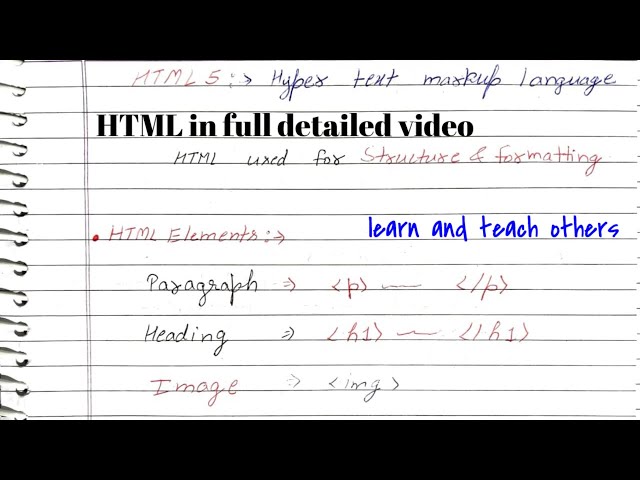 HTML 5 :→ Hyper text markup language
HTML in full detailed video
HTML used for Structure & formatting
learn and teach others
• HTML Elements :→
Paragraph ⇒ <p> — </p>
Heading ⇒ <h1> — </h1>
Image ⇒ <img>